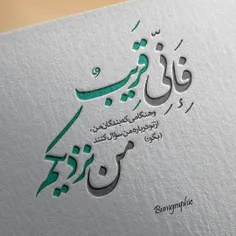 فَإِنِّی قَرِیبٌ
وهنگامی که بندگان من،
از تو درباره من سؤال کنند
(بگو:)
من نزدیکم
Biographic